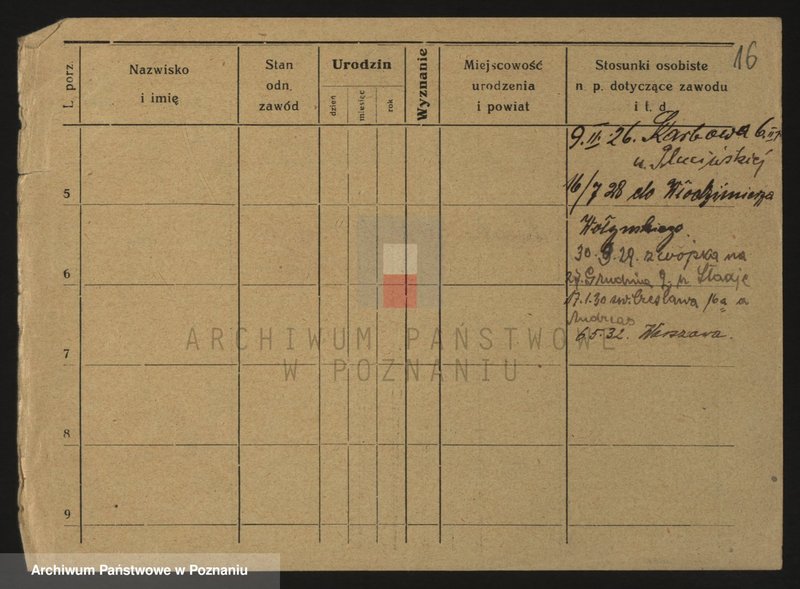 16
L. porz.
Nazwisko
i imię
Stan
odn.
zawód
Urodzin
dzień
miesięc
rok
Wyznanie
Miejscowość
urodzenia
i powiat
Stosunki osobiste
n. p. dotyczące zawodu
i t. d.
9. 26. Karbowa 6
u.
5
16/7 28 do Włodzimierza
Wołyńskiego.
30. 9. 29. z wojska na
6
27. Grudnia 9.
17.1.30 św. Czesława 16a a
Andreas
6.5.32. Warszawa.
7
8
9
ARCHIWUM PAŃSTWOWE
W POZNANIU
Archiwum Państwowe w Poznaniu